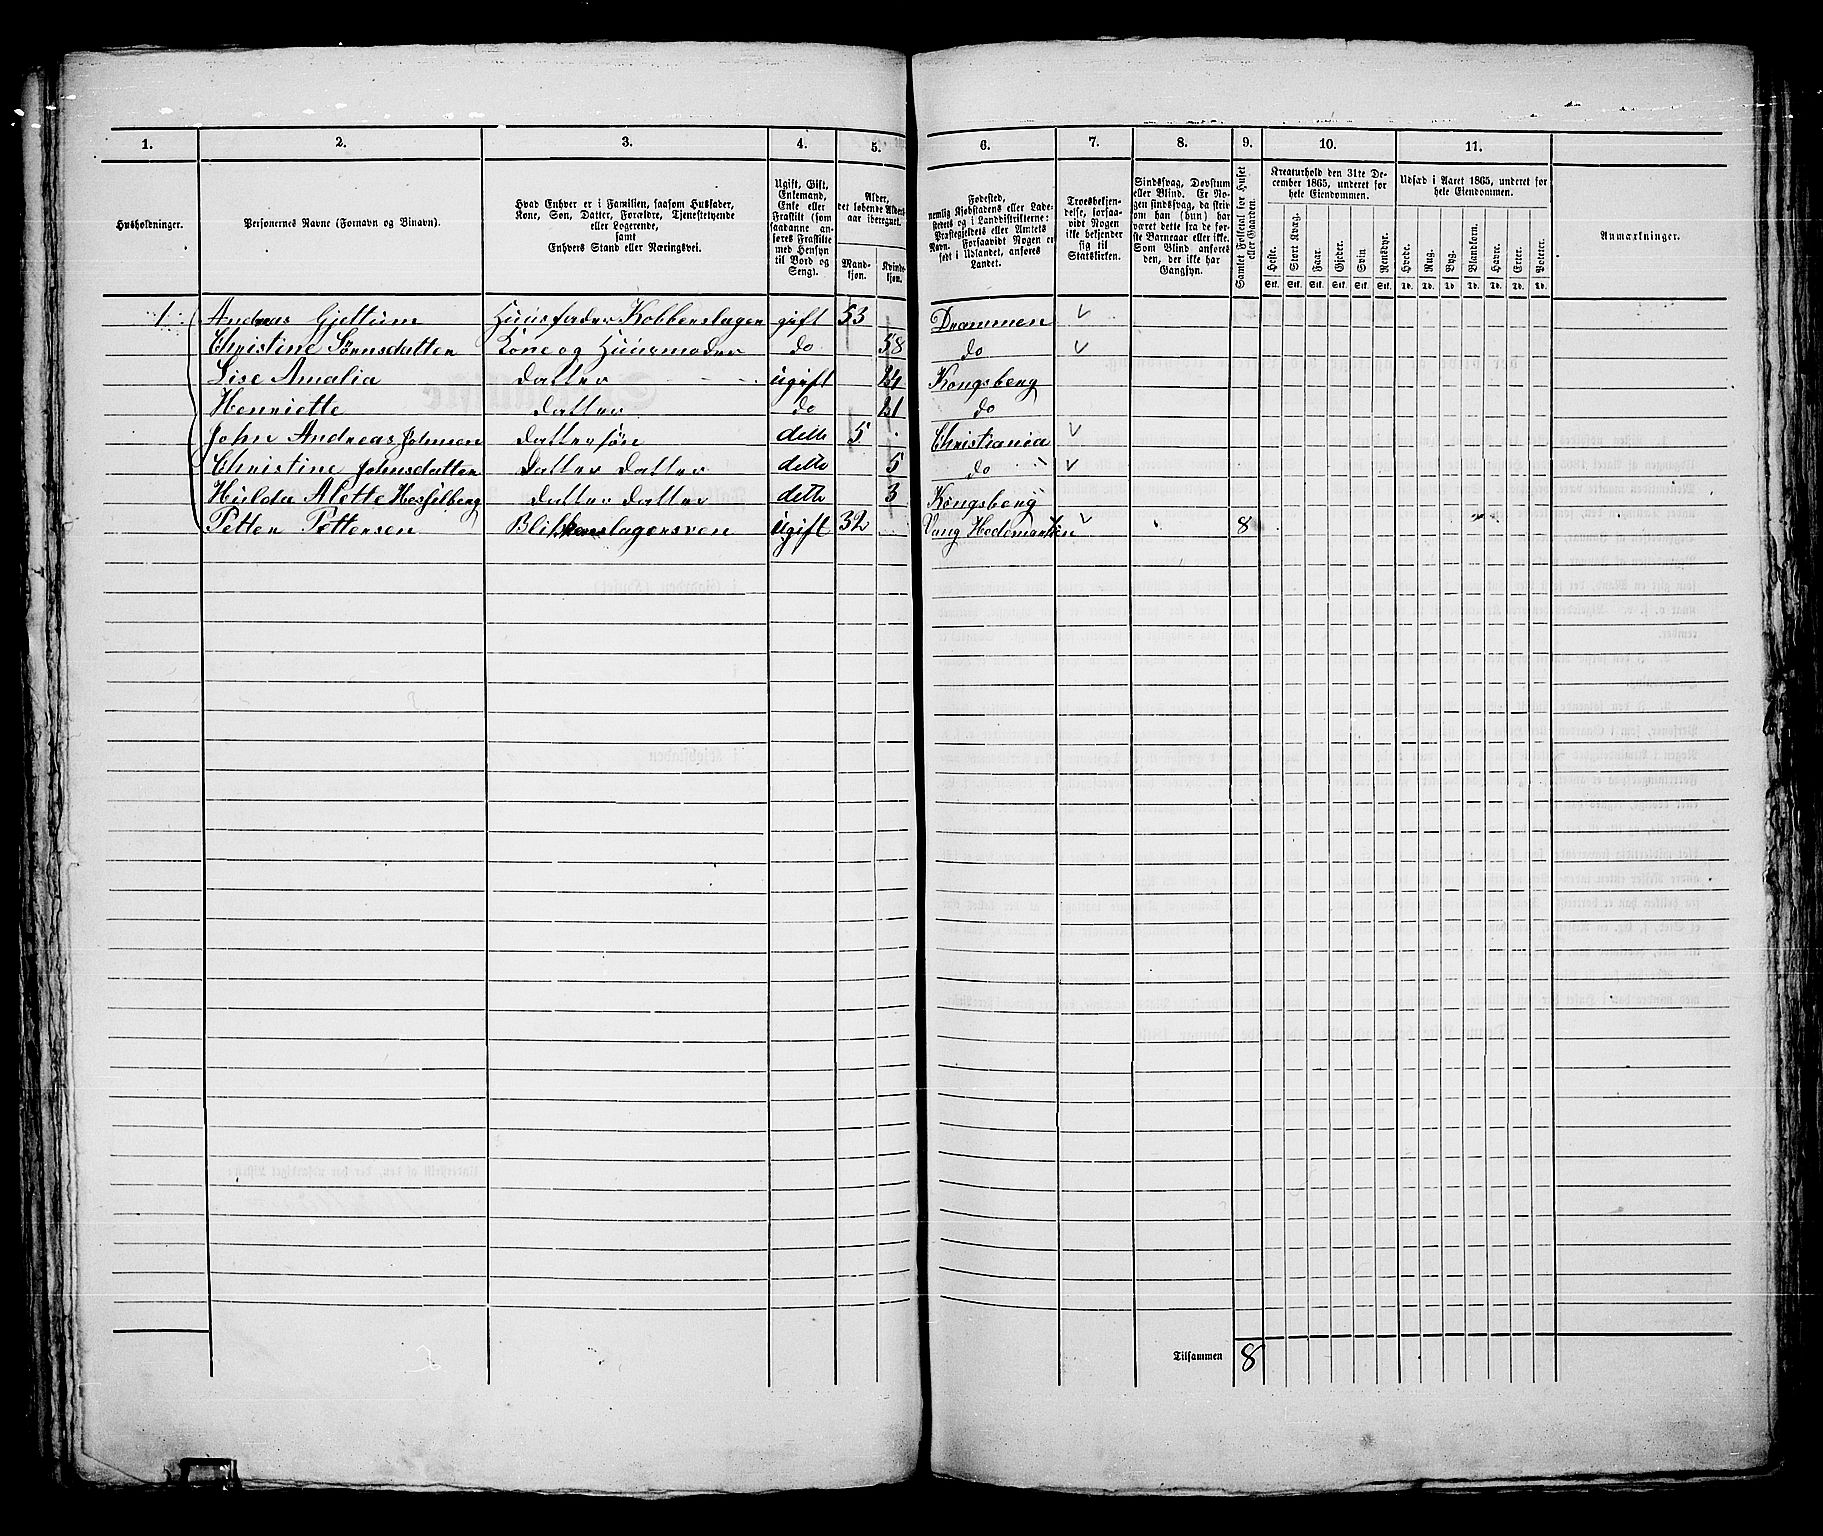 1. 2. 3. 4. 5. 6. 7. 8. 9. 10. 11.
Husholdninger.
Personernes Navne (Fornavn og Binavn).
Hvad Enhver er i Familien, saasom Husfader,
Kone, Søn, Datter, Forældre, Tjenestetyende
eller Logerende,
samt
Enhvers Stand eller Næringsvei.
Ugift, Gift,
Enkemand,
Enke eller
Fraskilt (som
saadanne an-
føres Fraskilte
med Hensyn
til Bord og
Seng).
Alder,
det løbende Alders-
aar iberegnet.
Mand-
kjøn.
Kvinde-
kjøn.
Fødested,
nemlig Kjøbstadens eller Lade-
stedets og i Landdistrikterne:
Præstegjeldets eller Amtets
Navn. Forsaavidt Nogen er
født i Udlandet, anføres
Landet.
Troesbekjen-
delse, forsaa-
vidt Nogen
ikke bekjender
sig til
Statskirken.
Sindssvag, Døvstum
eller Blind. Er No-
gen sindssvag, da skriv
om han (hun) har
været dette fra de før-
ste Barneaar eller ikke.
Som Blind anføres
den, der ikke har
Gangsyn.
Samlet Folketal for Huset
eller Gaarden.
Kreaturhold den 31te De-
cember 1865, underet for
hele Eiendommen.
Heste. Stort Kvæg. Faar. Gjeder. Svin Rensdyr.
Stk. Stk. Stk. Stk. Stk. Stk.
Udsæd i Aaret 1865, underet for
hele Eiendommen.
Hvede. Rug. Byg. Blandkorn. Havre. Erter. Poteter.
Td. Td. Td Td. Td. Td. Td.
Anmærkninger.
1. Andreas Gjeltum Huusfader Kobberslager gift 53 Drammen
Christine Sørnsdatter Kone og Huusmoder do 58 do
Lise Amalia datter ugift Kongsberg
Henriette datter do 21 do
John Andreas Johnsen dattersøn dette 5 Christiania
Christine Johnsdatter datter datter dette 5 do
Hulda Alette Hesselberg datter datter dette 3 Kongsberg
Petter Pettersen Blikkenslagersven ugift 32 Vang Hedemarken 8
Tilsammen 8